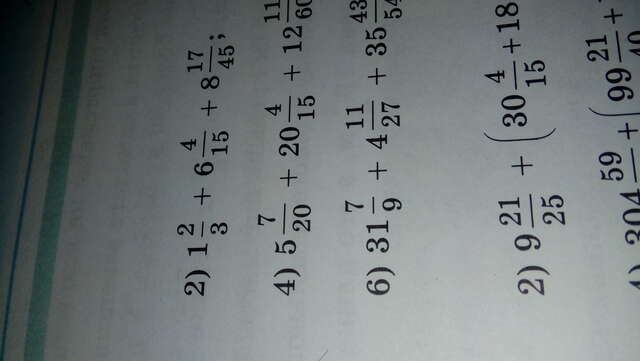 2) 1 2/3 + 6 4/15 + 8 17/45;
4) 5 7/20 + 20 4/15 + 12 11/60
6) 31 7/9 + 4 11/27 + 35 43/54
2) 9 21/25 + (30 4/15 + 18
4) 304 59/ + (99 21/40 +